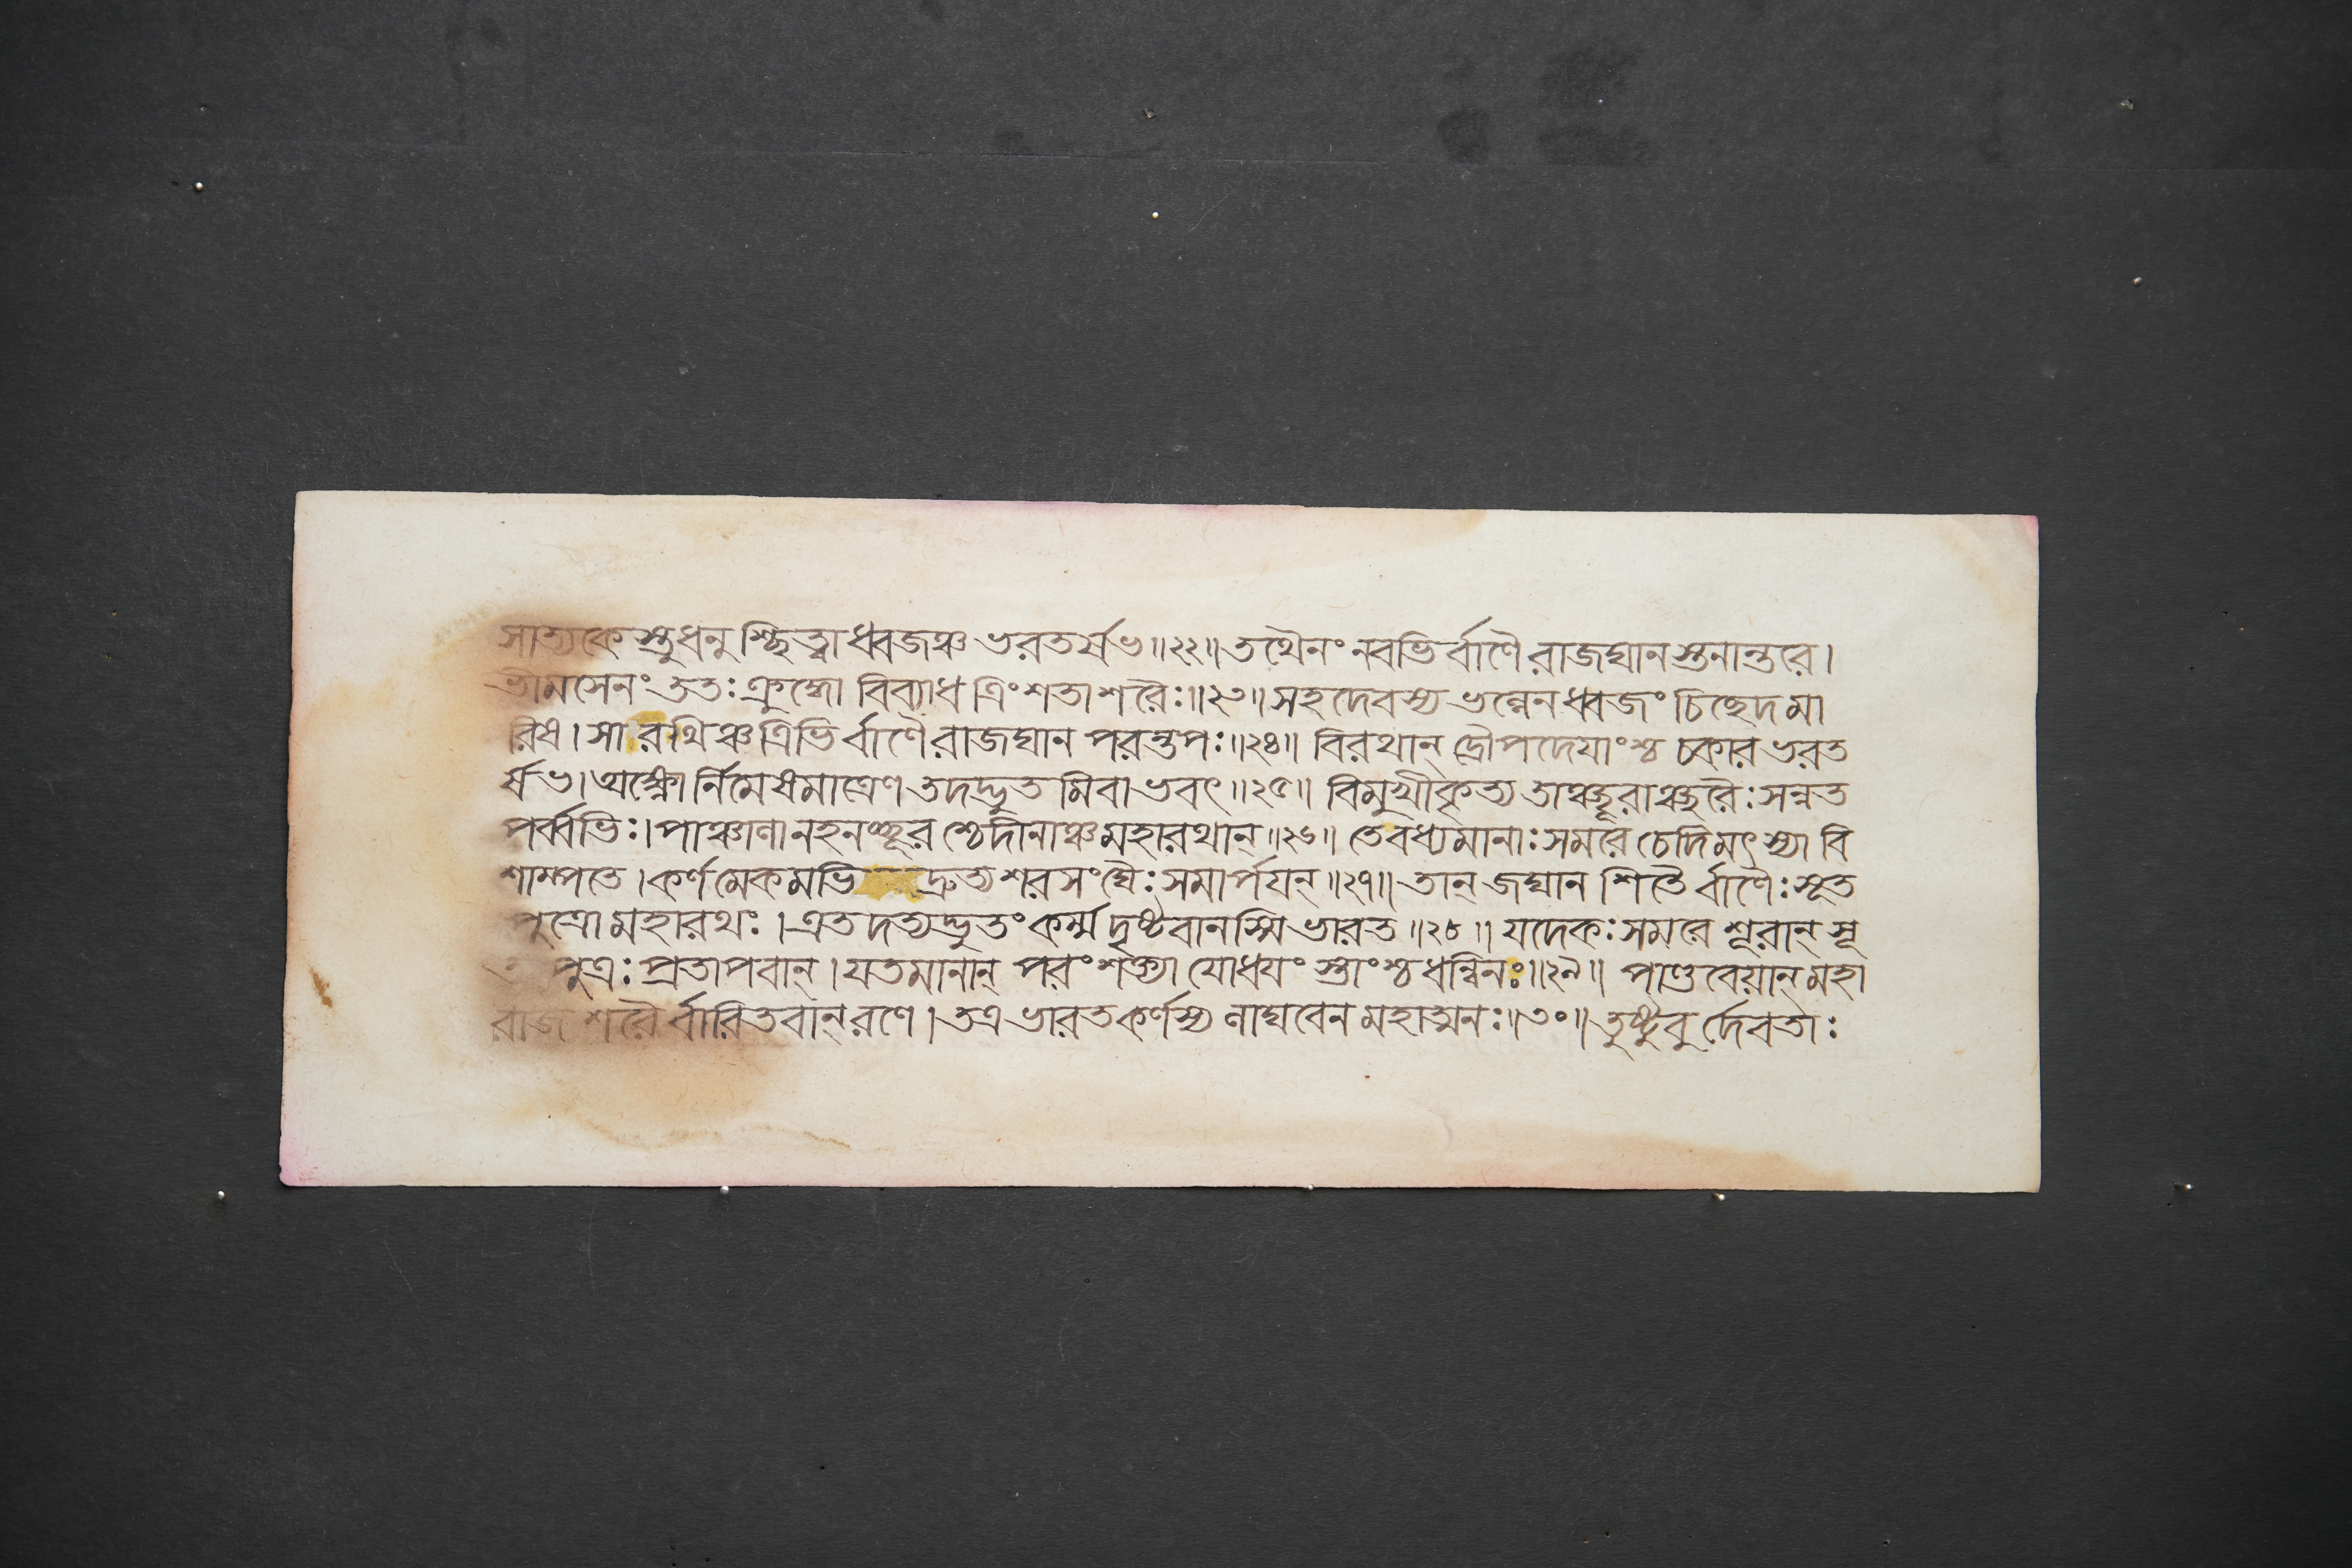 সাত্যকেস্তু ধনুশ্ছিত্ত্বা ধ্বজঞ্চ ভরতর্ষভ॥২২॥ তথৈনং নবভির্ব্বাণৈরাজঘান স্তনান্তরে।
ভীমসেনং ততঃ ক্রুদ্ধো বিব্যাধ ত্রিংশতা শরৈঃ॥২৩॥ সহদেবস্য ভল্লেন ধ্বজং চিছেদ মা
রিষ। সারথিঞ্চ ত্রিভির্ব্বাণৈরাজঘান পরন্তপঃ॥২৪॥ বিরথান্ দ্রৌপদেয়াংশ্চ চকার ভরত
র্ষভ। অক্ষ্ণোর্নিমেষমাত্রেণ তদদ্ভুতমিবাভবৎ॥২৫॥ বিমুখীকৃত্য তাঞ্ছূরাঞ্ছরৈঃ সন্নত
পর্ব্বভিঃ। পাঞ্চালানহনচ্ছূরশ্চেদীনাঞ্চ মহারথান্॥২৬॥ তে বধ্যমানাঃ সমরে চেদিমৎস্যা বি
শাম্পতে। কর্ণমেকমভিদ্রুত্য শরসংঘৈঃ সমার্পয়ন্॥২৭॥ তান্ জঘান শিতৈর্ব্বাণৈঃ সূত
পুত্রো মহারথঃ। এতদত্যদ্ভুতং কর্ম্ম দৃষ্টবানস্মি ভারত॥২৮॥ যদেকঃ সমরে শূরান্ সূ
ত পুত্রঃ প্রতাপবান্। যতমানান্ পরং শক্ত্যা যোধয়ংস্তাংশ্চ ধন্বিনঃ॥২৯॥ পাণ্ডবেয়ান্ মহা
রাজ শরৈর্ব্বারিতবান্ রণে। তত্র ভারত কর্ণস্য লাঘবেন মহাত্মনঃ॥৩০॥ তুষ্টুবুর্দেবতাঃ